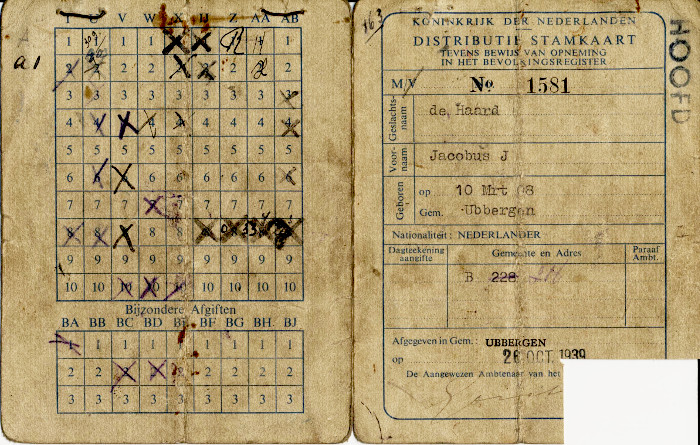 C V W X H Z AA AB
a 1
1 1 1 1 1 1
2 2 2 2 2 2 2
3 3 3 3 3 3 3 3 3
4 4 4 4 4 4 4 4 4
5 5 5 5 5 5 5 5 5
6 6 6 6 6 6 6 6
7 7 7 7 7 7 7 7
8 8 8 8
9 9 9 9 9 9 9 9 9
10 10 10 10 10 10 10 10 10
Bijzondere Afgiften
BA BB BC BD BE BF BG BH BJ
1 1 1 1 1 1 1 1
2 2 2 2 2 2 2 2 2
3 3 3 3 3 3 3 3 3
163
KONINKRIJK DER NEDERLANDEN
DISTRIBUTIE STAMKAART
TEVENS BEWIJS VAN OPNEMING
IN HET BEVOLKINGSREGISTER
HOOFD
M/V No 1581
Geslachtsnaam de Haard
Voornaam Jacobus J
Geboren op 10 Mrt 08
Gem. Ubbergen
Nationaliteit: NEDERLANDER
Dagteekening aangifte Gemeente en Adres Paraaf Ambt.
B 228
Afgegeven in Gem.: UBBERGEN
op 26 OCT 1939
De Aangewezen Ambtenaar van het